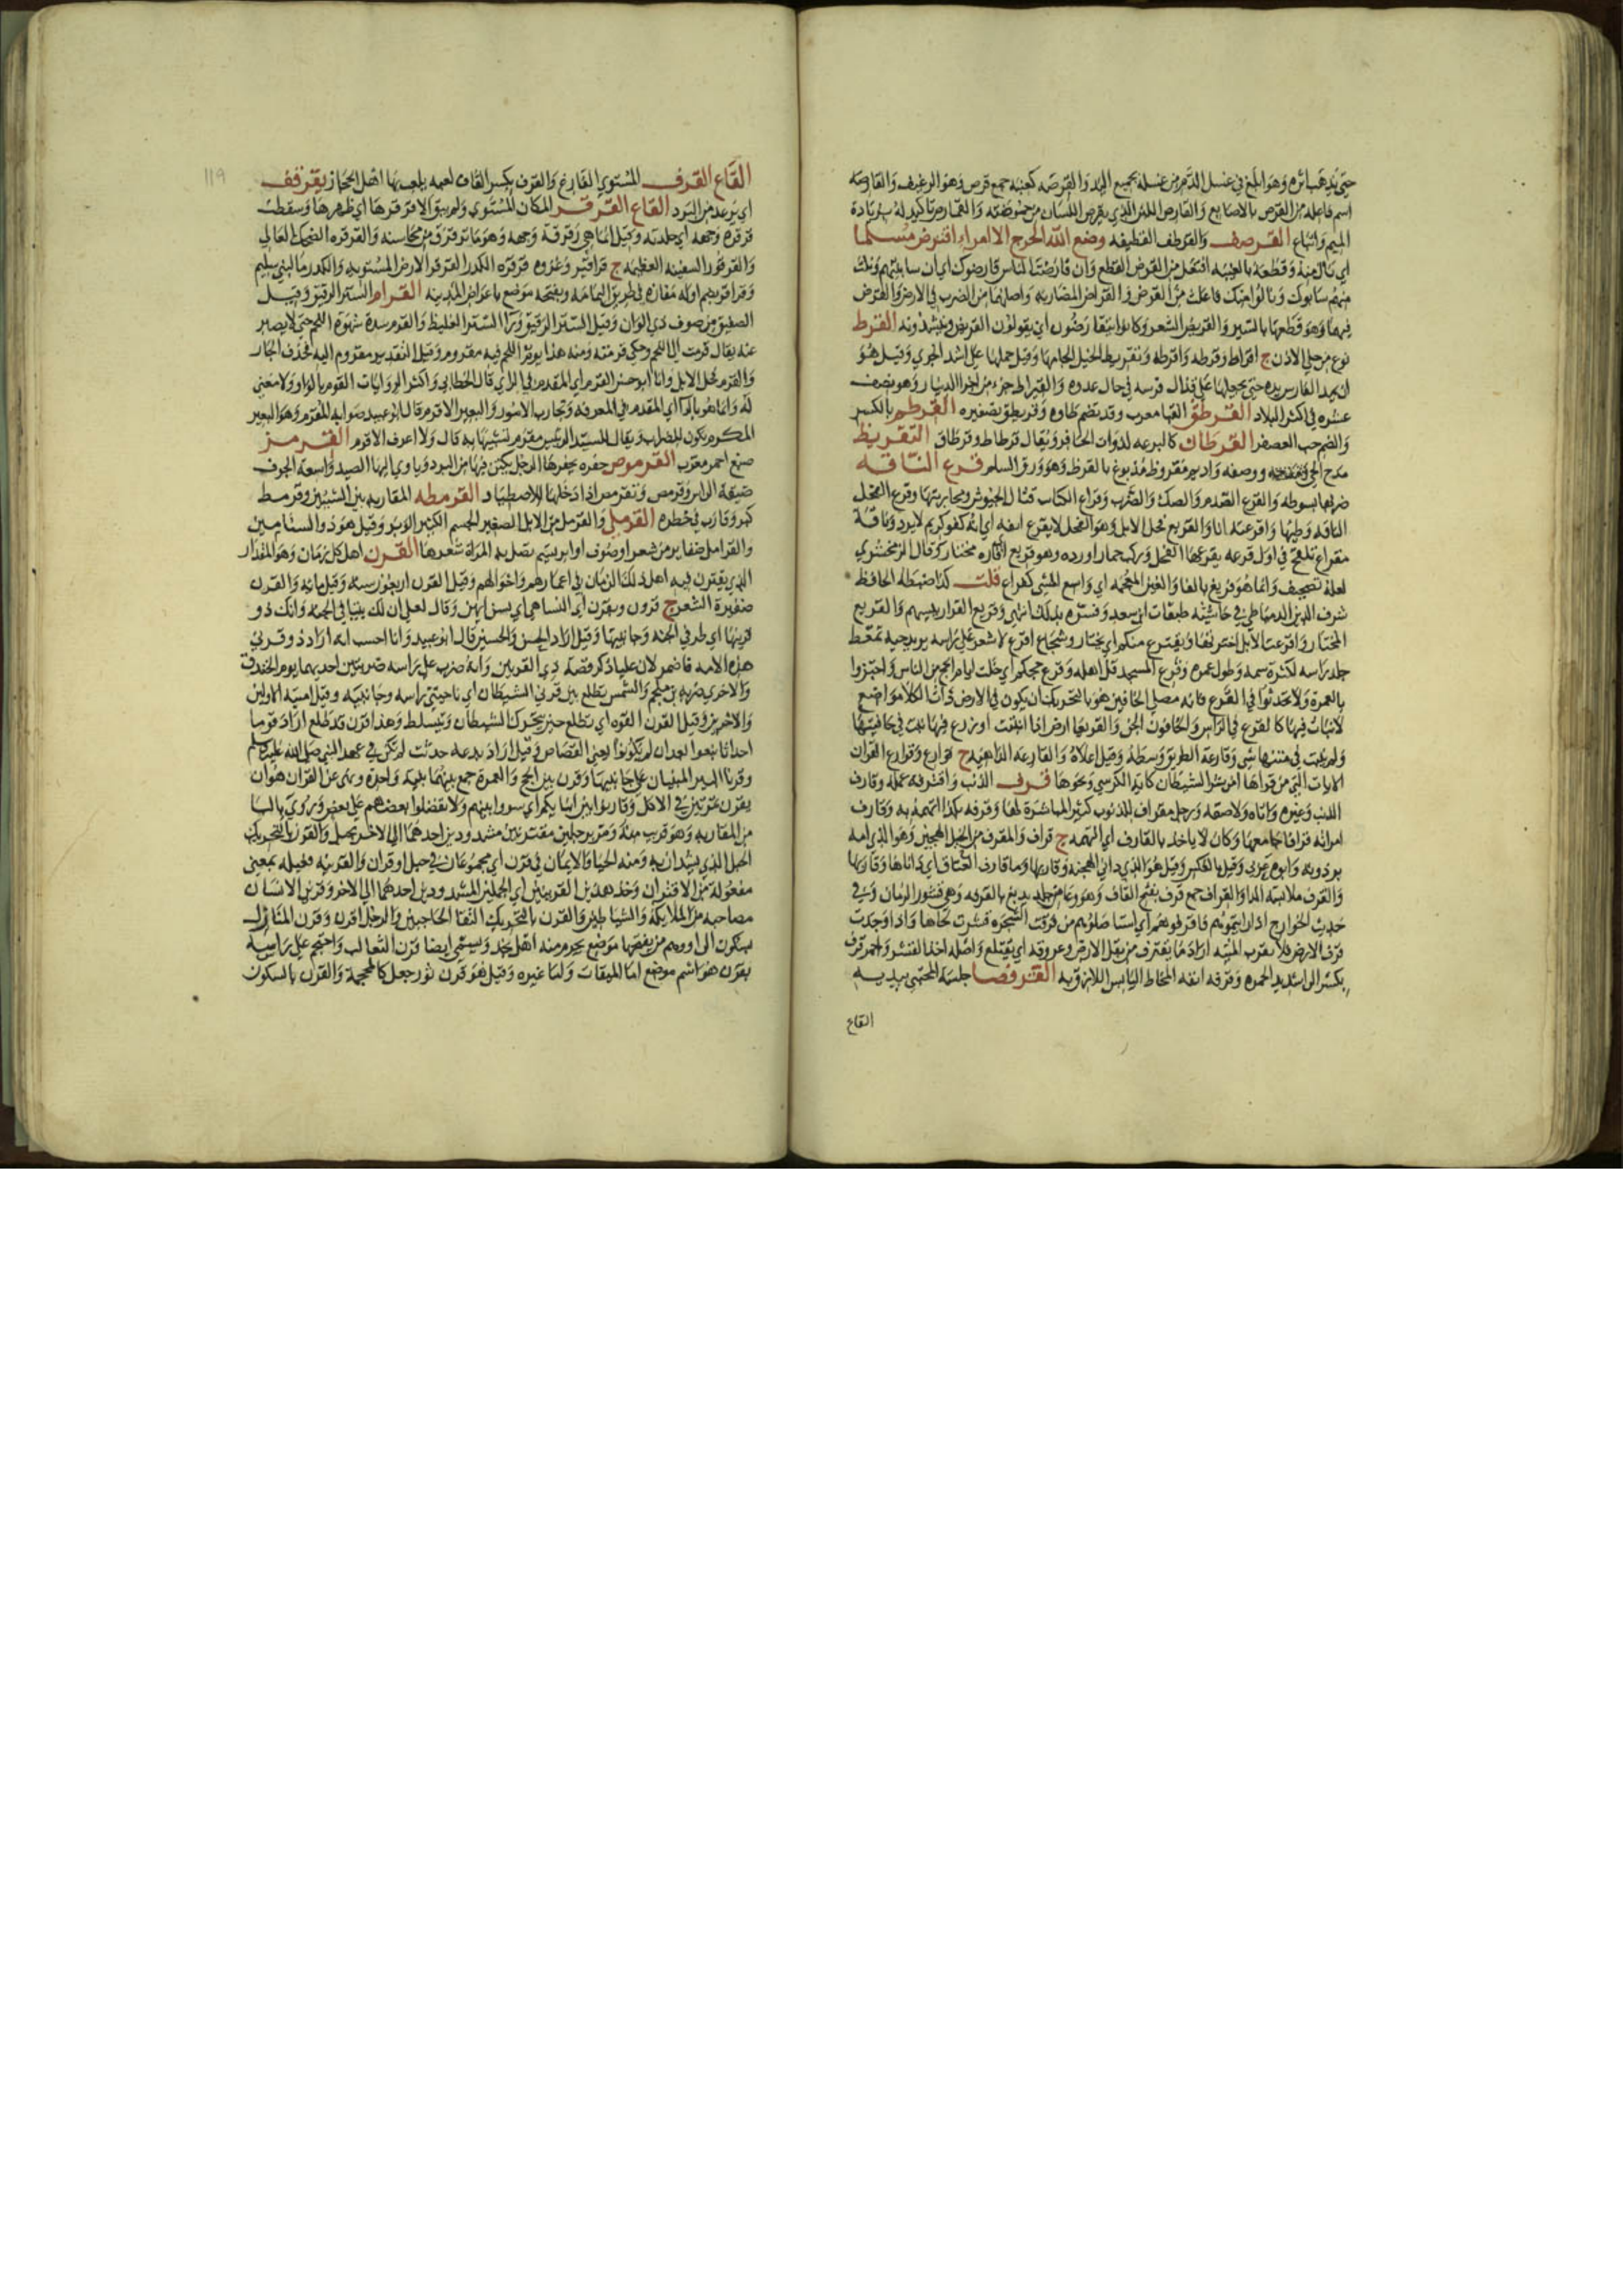 حتى يذهب اثره وهو ابلغ في غسل الدم من غسله بجميع اليد والقرصه كعنبه جمع قرص وهو الرغيف والقارصه
اسم فاعله من القرص بالاصابع والقارص اللبن الذي يقرص اللسان من حموضته والقمارص تاكيد له بزيادة
الميم واتباع القرصف والقرطف القطيفه وضع الله الحرج الا امراء اقترض مسلما
اي نال منه وقطعه بالغيبه افتعل من القرض القطع وان قارضت الناس قارضوك اي ان ساببتهم ونلت
منهم سابوك ونالوا منك فاعلت من القرض والقراض المضاربه واصلهما من الضرب في الارض والقرض
فيها وهو قطعها بالسير والقريض الشعر وكانوا يتقارضون اي يقولون القريض وينشدونه القرط
نوع من حلي الاذن ج اقراط وقرطه واقرطه وتقريط الخيل الجامها وقيل حملها على اشد الجري وقيل هو
ان يمد الفارس يده حتى يجعلها على قذال فرسه في حال عدوه والقيراط جزء من اجزا الدينار وهو نصف
عشره في اكثر البلاد القرطق القبا معرب وقد تضم طاوه وقريطق تصغيره القرطم بالكسر
والضم حب العصفر القرطان كالبرعه لذوات الحافر ويقال قرطاط وقرطاق التقريظ
مدح الحي ووصفه واديم مقروظ مدبوغ بالقرظ وهو ورق السلم قرع الناقه
ضربها بسوطه والقرع القدم والصك والضرب وقراع الكتاب قتال الجيوش ومحاربتها وقرع الفحل
الناقه وطيها واقرعته انا والقريع فحل الابل وهو الفحل لا يقرع انفه اي انه كفو كريم لا يرد وناقة
مقراع تلقح في اول قرعه يقرعها الفحل وركب حمار اورده وهو قريع اقاره مختار كر قال الزمخشري
لعله تصحيف وانما هو فريغ بالفا والغين المعجمه اي واسع المشي كفراغ قلت كذا ضبطه الحافظ
شرف الدين الدمياطي في حاشية طبقات ابن سعد وفسره بذلك انتهى وقريع القرا رييسهم والقريع
المختار واقرعت الابل اخترتها ويقترع منكم اي يختار وشجاع اقرع لا شعر على راسه يريد حيه تمعط
جلد راسه لكثرة سمه وطول عمره وقرع المسجد قل اهله وقرع حجكم اي خلت ايام الحج من الناس واجتزوا
بالعمرة ولا تحدثوا في القرع فانه مصلي الخافين هو بالتحريك ان يكون في الارض ذات الكلا مواضع
لا نبات فيها كالقرع في الراس والخافون الجن والقريعا ارض اذا انبتت او زرع فيها نبت في حافتيها
ولم ينبت في متنها شي وقارعة الطريق وسطه وقيل اعلاه والقارعه الداهيه ج قوارع وقوارع القران
الايات التي من قراها امن شر الشيطان كاية الكرسي ونحوها قرف الذنب واقترفه عمله وقارف
الذنب وغيره واتاه ولاصقه ورجل مقراف للذنوب كثير المباشرة لها وقرفه بكذا اتهمه به وقارف
امراته قرافا جامعها وكان لا ياخذ بالقارف اي التهمه ج قراف والمقرف من الخيل الهجين وهو الذي امه
برذونه وابوه عربي وقيل بالعكس وقيل هو الذي داني الهجنه وقاربها وما قارف العتاق اي داناها وقاربها
والقرف ملابسة الدا والقراف جمع قرف بفتح القاف وهو وعا من جلد يدبغ بالقرفه وهي قشور الرمان وفي
حديث الخوارج اذا رايتموهم فاقرفوهم اي استاصلوهم من قرفت الشجره قشرت لحاها واذا وجدت
قرف الارض فلا تقرب الميته اراد ما يقترف من بقل الارض وعروقه اي يقتلع واصله اخذ القشر واحمر قرف
بكسر الرا شديد الحمره وقرفه انفه المخاط اليابس اللازق به القرفصا جلسة المحتبي بيديه
القاع
119
القاع القرف المستوي الفارغ والقرق بكسر القاف لعبه يلعب بها اهل الحجاز يقرقف
اي يرعد من البرد القاع القرقر المكان المستوي ولم يبق الا قرقرها اي ظهرها وسقطت
قرقره وجهه اي جلدته وقيل انما هي رقرقة وجهه وهو ما ترقرق من محاسنه والقرقره الضحك العالي
والقرقور السفينه العظيمه ج قراقير وغزوه قرقره الكدر القرقر الارض المستويه والكدر ما لبني سليم
وقراقر بضم اوله مفازه في طريق اليمامه وبفتحه موضع باعراض المدينه القرام الستر الرقيق وقيل
الصفيق من صوف ذي الوان وقيل الستر الرقيق ورا الستر الغليظ والقرم شدة شهوة اللحم حتى لا يصبر
عنه يقال قرمت الى اللحم وحكي قرمته ومنه هذا يوم اللحم فيه مقروم وقيل التقدير مقروم اليه فحذف الجار
والقرم فحل الابل وانا ابو حسن القرم اي المقدم في الراي قال الخطابي واكثر الروايات القوم بالواو ولا معنى
له وانما هو بالرا اي المقدم في المعرفه وتجارب الامور والبعير الاقرم قال ابو عبيد صوابه المقرم وهو البعير
المكرم يكون للضراب ويقال للسيد الرييس مقرم تشبيها به قال ولا اعرف الاقرم القرمز
صبغ احمر معرب القرموص حفره يحفرها الرجل يكتن فيها من البرد وياوي اليها الصيد واسعة الجوف
ضيقة الراس وقرمص وتقرمص اذا دخلها للاصطياد القرمطه المقاربه بين الشيئين وقرمط
كبر وقارب في خطوه القرملي والقرمل من الابل الصغير الجسم الكثير الوبر وقيل هو ذو السنامين
والقرامل ضفاير من شعر او صوف او ابريسم تصل به المراة شعرها القرن اهل كل زمان وهو المقدار
الذي يقترن فيه اهل ذلك الزمان في اعمارهم واحوالهم وقيل القرن اربعون سنه وقيل مايه والقرن
ضفيرة الشعر ج قرون وبقرن اي النسا هي اي بسن ايهن وقال لعلي ان لك بيتا في الجنه وانك ذو
قرنيها اي طرفي الجنه وجانبيها وقيل اراد الحسن والحسين قال ابو عبيد وانا احسب انه اراد ذو قرني
هذه الامه فاضمر لان عليا ذكر قصة ذي القرنين وانه ضرب على راسه ضربتين احديهما يوم الخندق
والاخري ضربه بن ملجم والشمس تطلع بين قرني الشيطان اي ناحيتي راسه وجانبيه وقيل امتيه الاولين
والاخرين وقيل القرن القوه اي تطلع حين يتحرك الشيطان ويتسلط وهذا قرن قد طلع اراد قوما
احداثا نبغوا بعد ان لم يكونوا يعني القصاص وقيل اراد بدعه حدثت لم تكن في عهد النبي صلى الله عليه وسلم
وقرنا البير المبنيان على جانبيها وقرن بين الحج والعمرة جمع بينهما بنية واحدة ونهى عن القران هو ان
يقرن تمرتين في الاكل وقاربوا بين ابنايكم اي سووا بينهم ولا تفضلوا بعضهم على بعض وروي بالبا
من المقاربه وهو قريب منه ومر برجلين مقترنين مشدودين احدهما الى الاخر بحبل والقرن بالتحريك
الحبل الذي يشدان به ومنه الحيا والايمان في قرن اي مجموعان في حبل او قران والقرينه فعيله بمعنى
مفعولة من الاقتران وخذ هذين القرينين اي الجملين المشدودين احدهما الى الاخر وقرين الانسان
مصاحبه من الملايكة والشياطين والقرن بالتحريك التقا الحاجبين والرجل اقرن وقرن المنازل
بسكون الرا ووهم من يفتحها موضع يحرم منه اهل نجد ويسمى ايضا قرن الثعالب واحتجم على راسه
بقرن هو اسم موضع اما الميقات واما غيره وقيل هو قرن ثور جعل كالمحجمة والقرن بالسكون